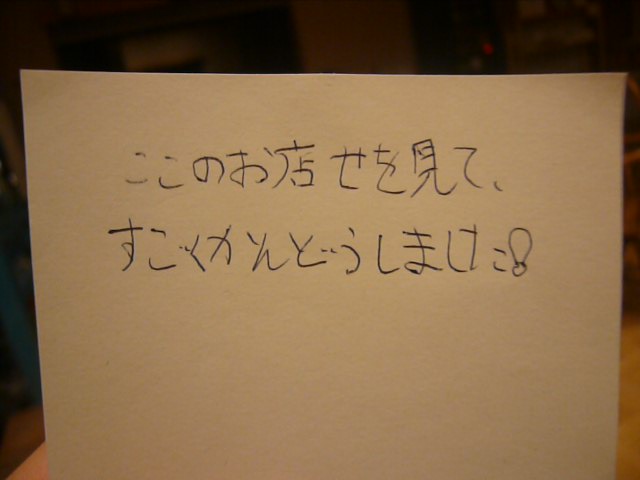 ここのお店せを見て、
すごくかんどうしました!